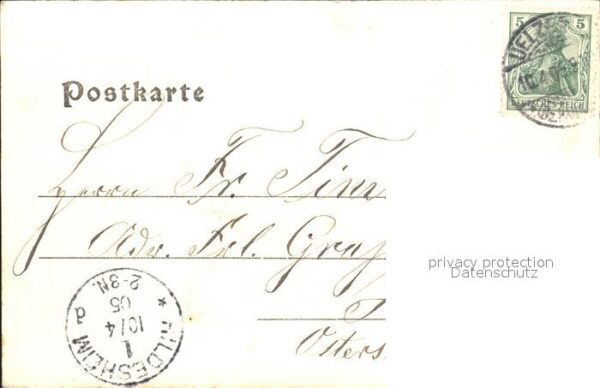 5 5
UELZEN
10.4.05
DEUTSCHES REICH
Postkarte
Herrn Fr. Tim
Adr. Frl. Graf
privacy protection
Datenschutz
Osters
HILDESHEIM
1
10/4
05
2-3N.